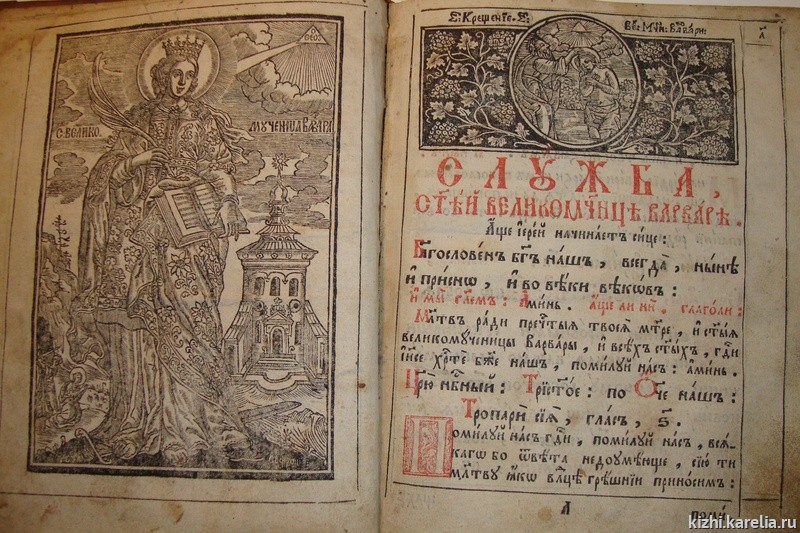 Ѳеос
С. ВЕЛИКО
МУЧЕНИЦА ВАРВАРА
С. Крещенїе Г.
Вє: Мч҃и: Варвари:
СЛꙊЖБА,
СТ҃Е́Й ВЕЛИКОМЧ҃ИЦѢ ВАРВА́РѢ.
А҆́ще І҆ере́й начина́етъ си́це:
Бл҃гослове́нъ Бг҃ъ на́шъ, всегда̀, ны́нѣ
и҆ при́снѡ, и҆ во вѣ́ки вѣкѡ́въ:
И҆ мы̀ гл҃емъ: А҆ми́нь. А҆́ще ли нѝ, глаго́ли:
Мл҃твъ ра́ди пречⷭ҇тыѧ твоеѧ̀ мт҃ре, и҆ ст҃ы́ѧ
великомч҃еницы Варва́ры, и҆ всѣ́хъ ст҃ы́хъ, гдⷭ҇и
і҆и҃се хрⷭ҇те бж҃е на́шъ, поми́лꙋй на́съ: а҆ми́нь.
Цр҃ю̀ нбⷭ҇ный: Трист҃о́е: по Ѻ҆́ч҃е на́шъ:
Тропарѝ сїѧ̑, гла́съ, ѕ҃.
Поми́лꙋй на́съ гдⷭ҇и, поми́лꙋй на́съ, всѧ́-
кагѡ бо ѿвѣ́та недоꙋмѣ́юще, сїю̀ ти
мл҃твꙋ ꙗ҆́кѡ влⷣцѣ грѣ́шнїи прино́симъ:
А
помꙋ
kizhi.karelia.ru